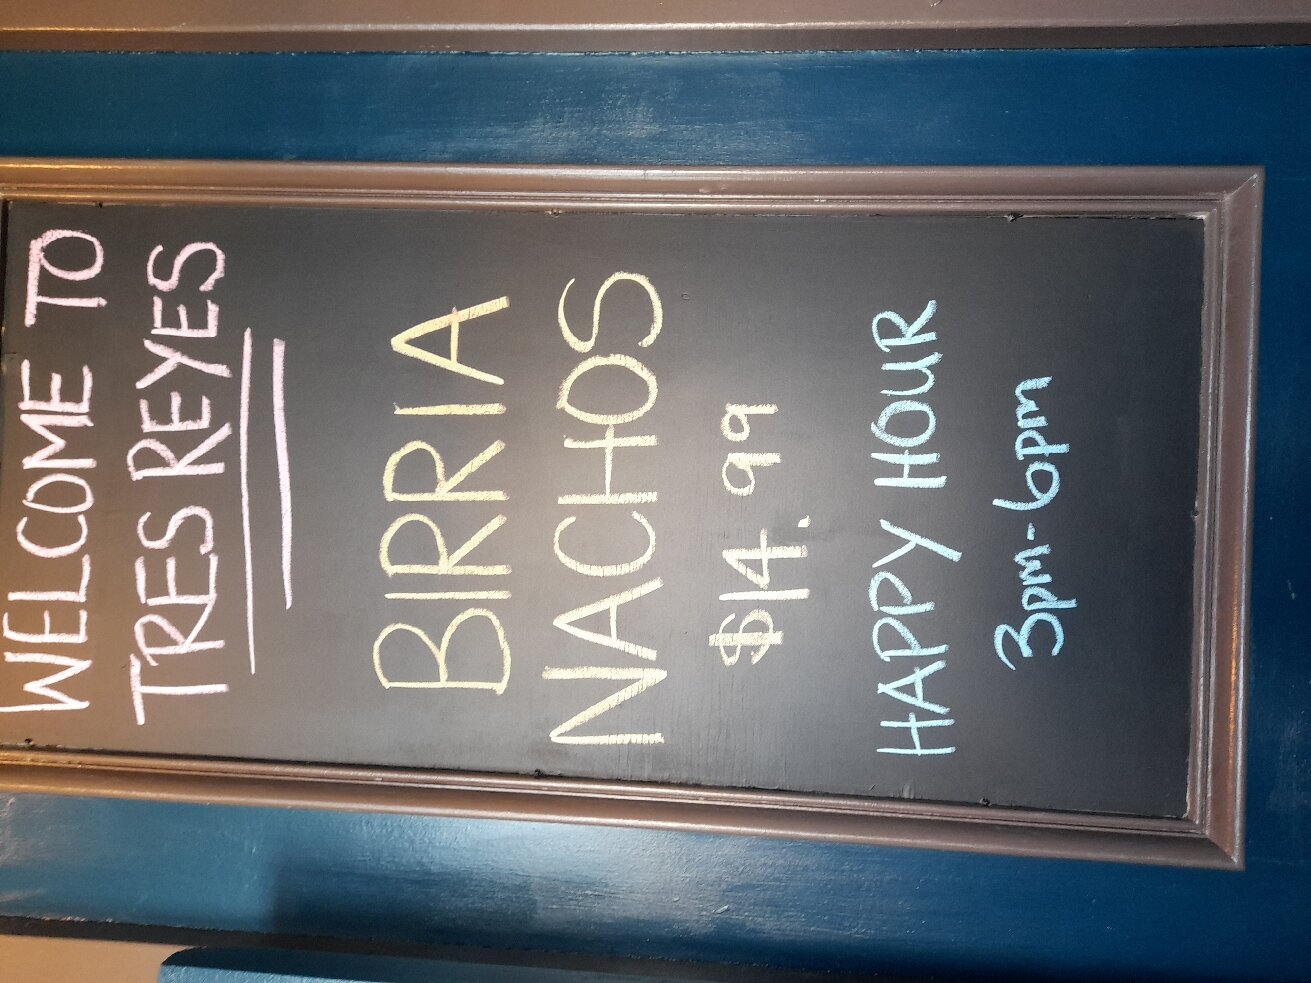 WELCOME TO
TRES REYES
BIRRIA
NACHOS
$14.99
HAPPY HOUR
3pm-6pm